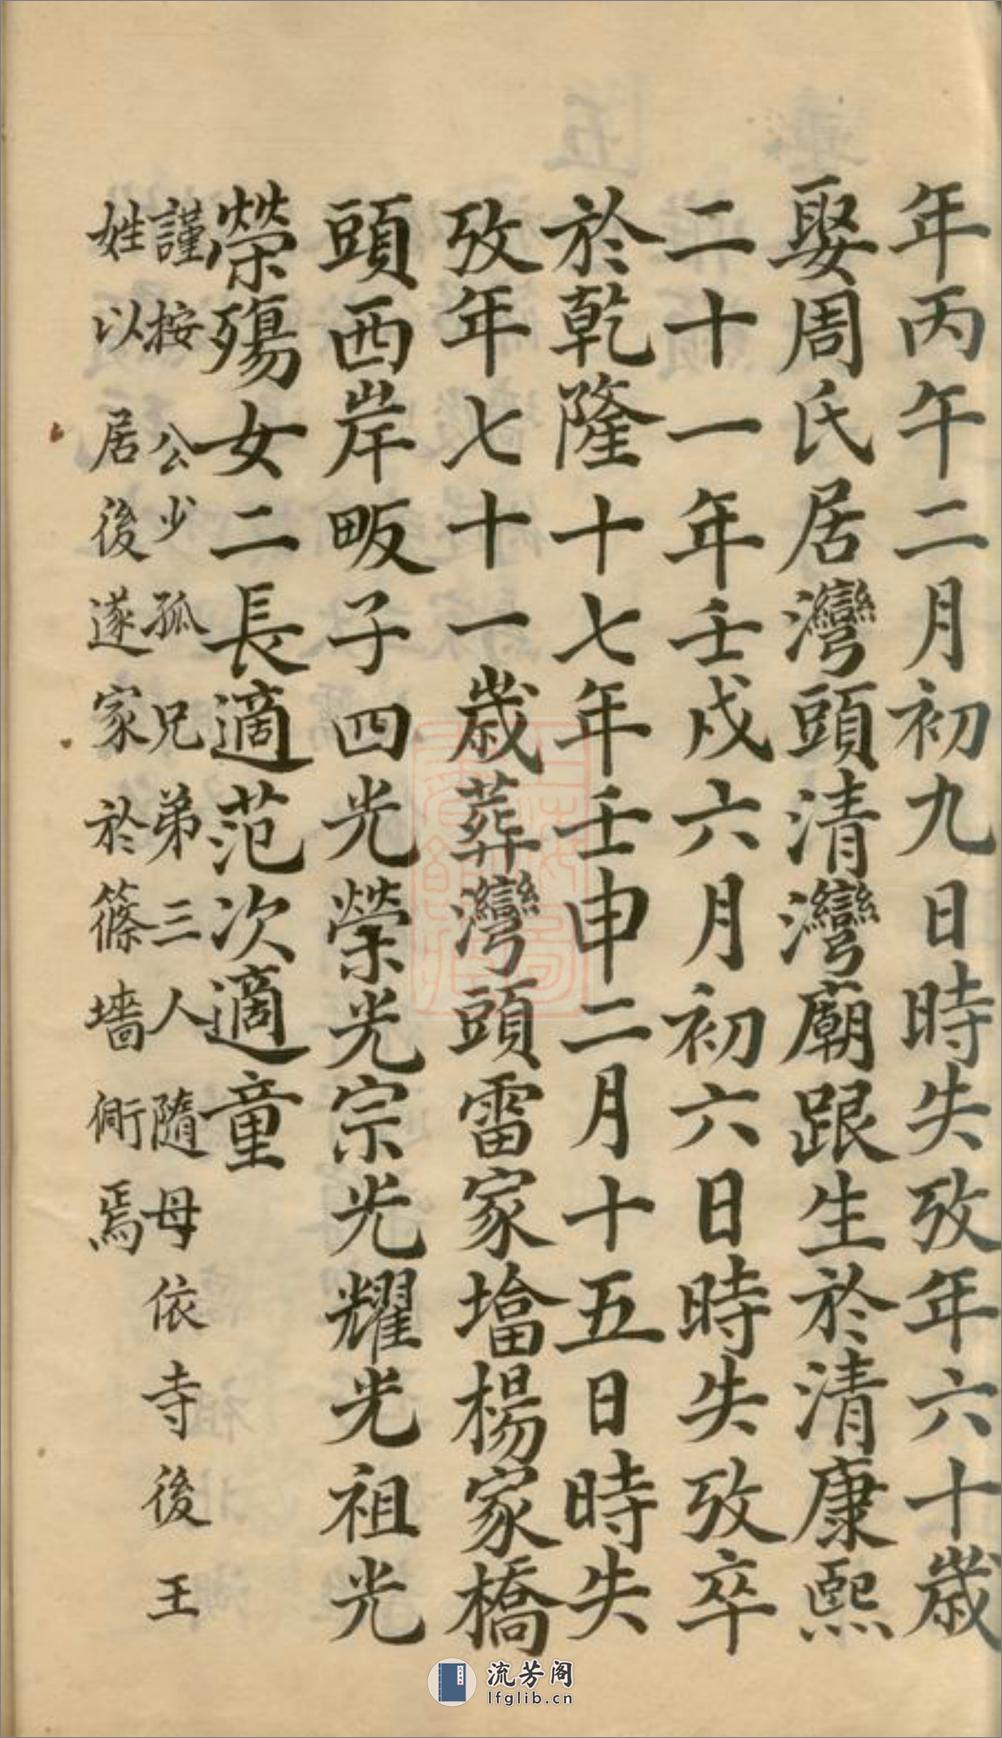 年丙午二月初九日時失攷年六十歲
娶周氏居灣頭清灣廟跟生於清康熙
二十一年壬戌六月初六日時失攷卒
於乾隆十七年壬申二月十五日時失
攷年七十一歲葬灣頭雷家墖楊家橋
頭西岸畈子四光榮光宗光耀光祖光
榮殤女二長適范次適童
謹按公少孤兄弟三人隨母依寺後王
姓以居後遂家於篠墻衖焉
流芳阁
lfglib.cn